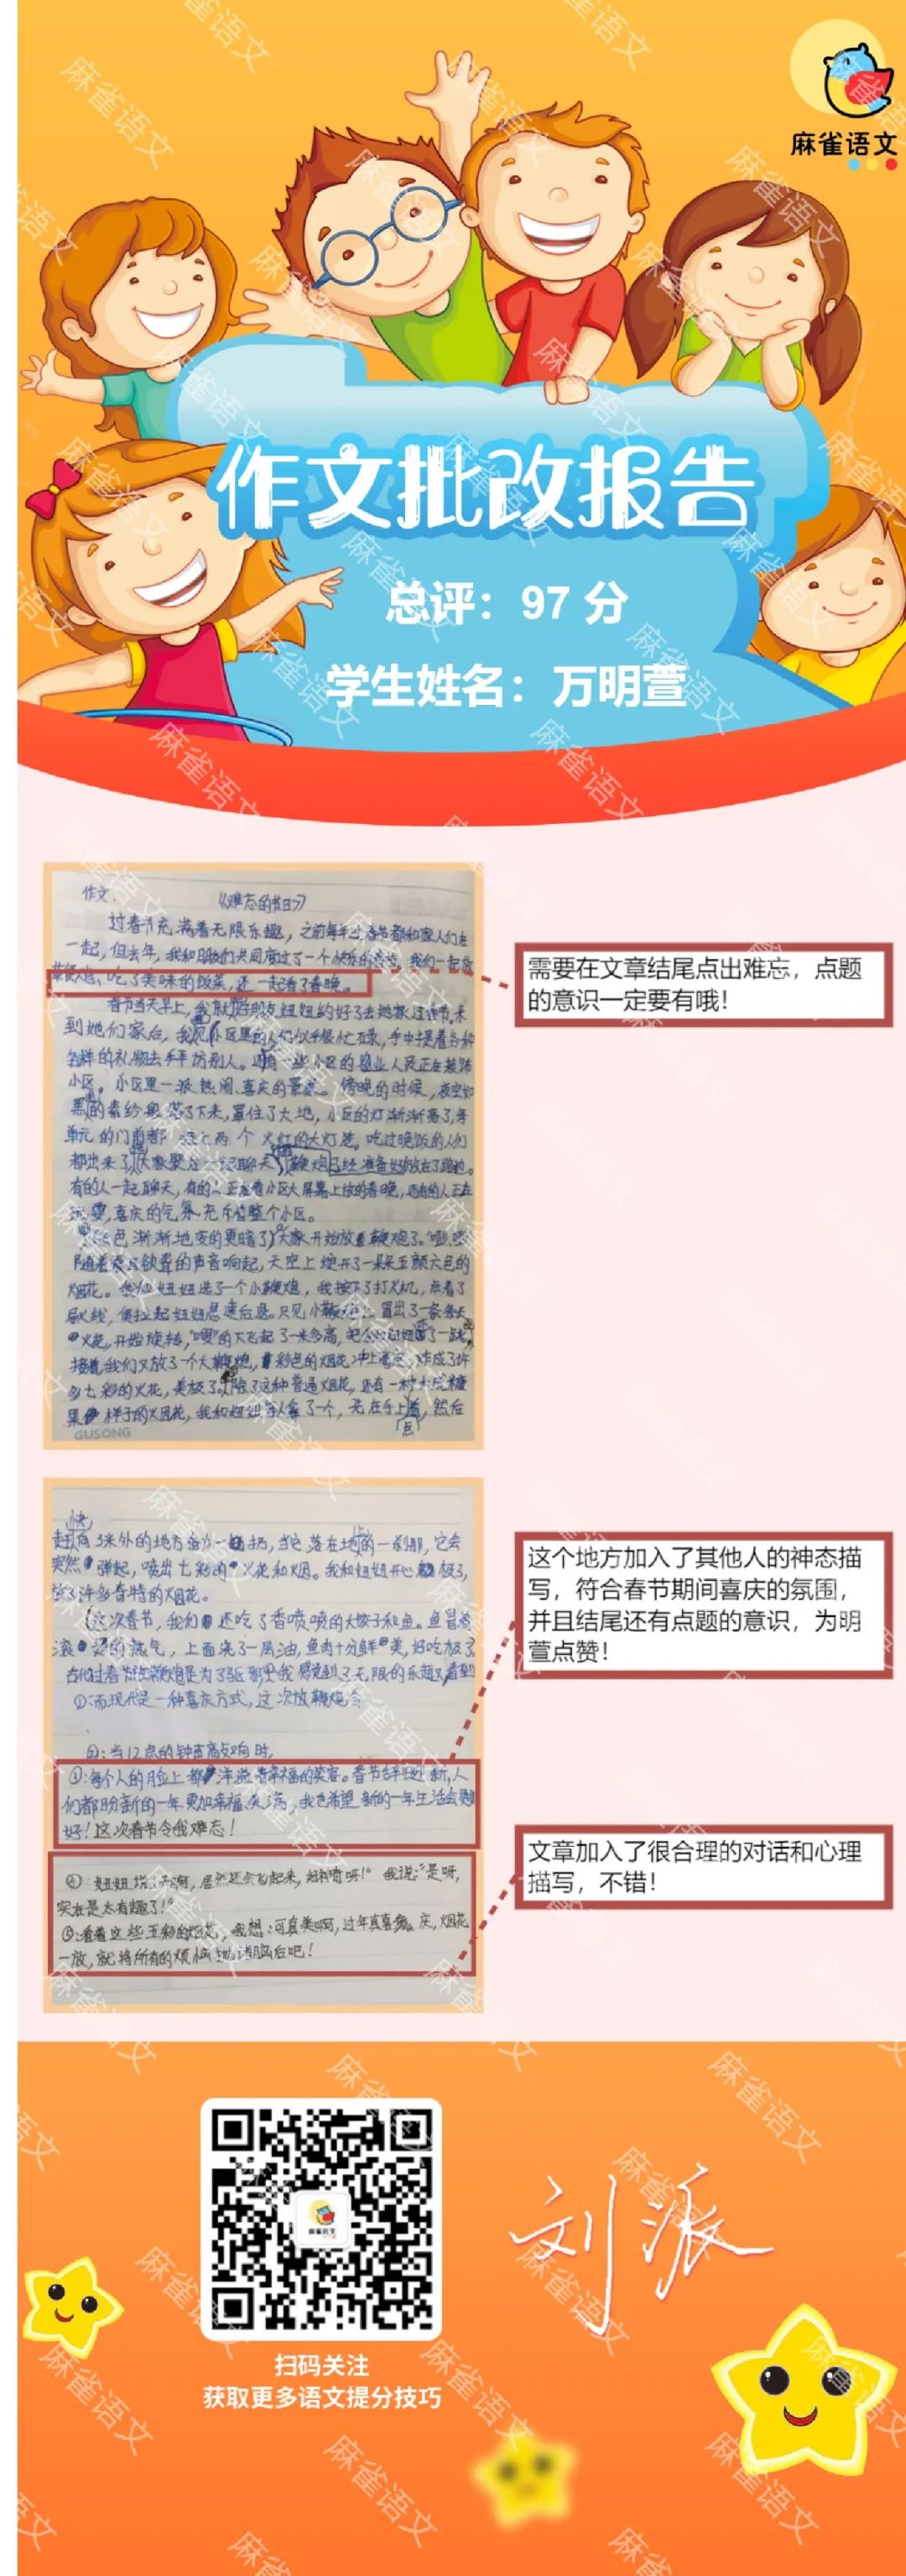 麻雀语文
作文批改报告
总评：97 分
学生姓名：万明萱
作文： 《难忘的节日》
过春节充满着无限乐趣，之前每年过春节都和家人们在
一起，但去年，我和朋友们共同度过了一个快乐的春节，我们一起放
鞭炮、吃了美味的饭菜，还一起看了春晚。
需要在文章结尾点出难忘，点题
的意识一定要有哦！
春节当天早上，我就好朋友妞妞约好了去她家过春节，来
到她们家后，我见小区里的人们似乎很忙碌，手中提着各种
各样的礼物去拜访别人。还有一些小区的物业人员正在装饰
小区。小区里一派热闹、喜庆的景象。傍晚的时候，夜空如
黑的素纱般落了下来，罩住了大地，小区的灯渐渐亮了，每
单元的门前都 上两个火红的大灯笼。吃过晚饭的人们
都出来了，大家聚在一起聊天，鞭炮已经准备好放在了路边。
有的人一起聊天，有的人正在看小区大屏幕上放的春晚，还有的人正在
玩耍，喜庆的气氛充斥着整个小区。
色渐渐地变的更暗了，大家开始放鞭炮了。
随着震耳欲聋的声音响起，天空上绽开了一朵朵五颜六色的
烟花。我和妞妞选了一个小鞭炮，我按下了打火机，点着了
导火线，便拉起妞妞急速后退。只见小鞭炮 冒出了一条条
火花，开始旋转，“嗖”的一下飞起了一米多高，把 妞妞 了一跳，
接着我们又放了一个大鞭炮，彩色的烟花冲上高空，炸成了许
多七彩的火花，美极了。除了这种普通烟花，还有一种 糖
果 样子的烟花，我和妞妞每人拿了一个，先在手上点着，然后
点
GUSONG
快
赶向3米外的地方奋力一扔，当它落在地上的一刹那，它会
突然弹起，喷出七彩的火花和烟。我和妞妞开心极了，
放了许多奇特的烟花。
这次春节，我们还吃了香喷喷的大饺子和鱼。鱼冒着
滚 的热气，上面浇了一层油，鱼肉十分鲜美，好吃极了。
古代过春节放鞭炮是为了驱邪，①我感觉到了无限的乐趣②看到
①：而现代是一种喜庆方式，这次放鞭炮令
②：当12点的钟声高处响时，
③：每个人的脸上都洋溢着幸福的笑容。春节辞旧迎新，人
们都盼新的一年更加幸福美满，我也希望新的一年生活会更
好！这次春节令我难忘！
这个地方加入了其他人的神态描
写，符合春节期间喜庆的氛围，
并且结尾还有点题的意识，为明
萱点赞！
④：妞妞说：“啊，居然还会飞起来，好神奇呀！”我说：“是呀，
实在是太有趣了！”
⑤：看着这些五彩的烟花，我想：可真美啊，过年真喜庆，烟花
一放，就将所有的烦恼抛诸脑后吧！
文章加入了很合理的对话和心理
描写，不错！
刘派
扫码关注
获取更多语文提分技巧